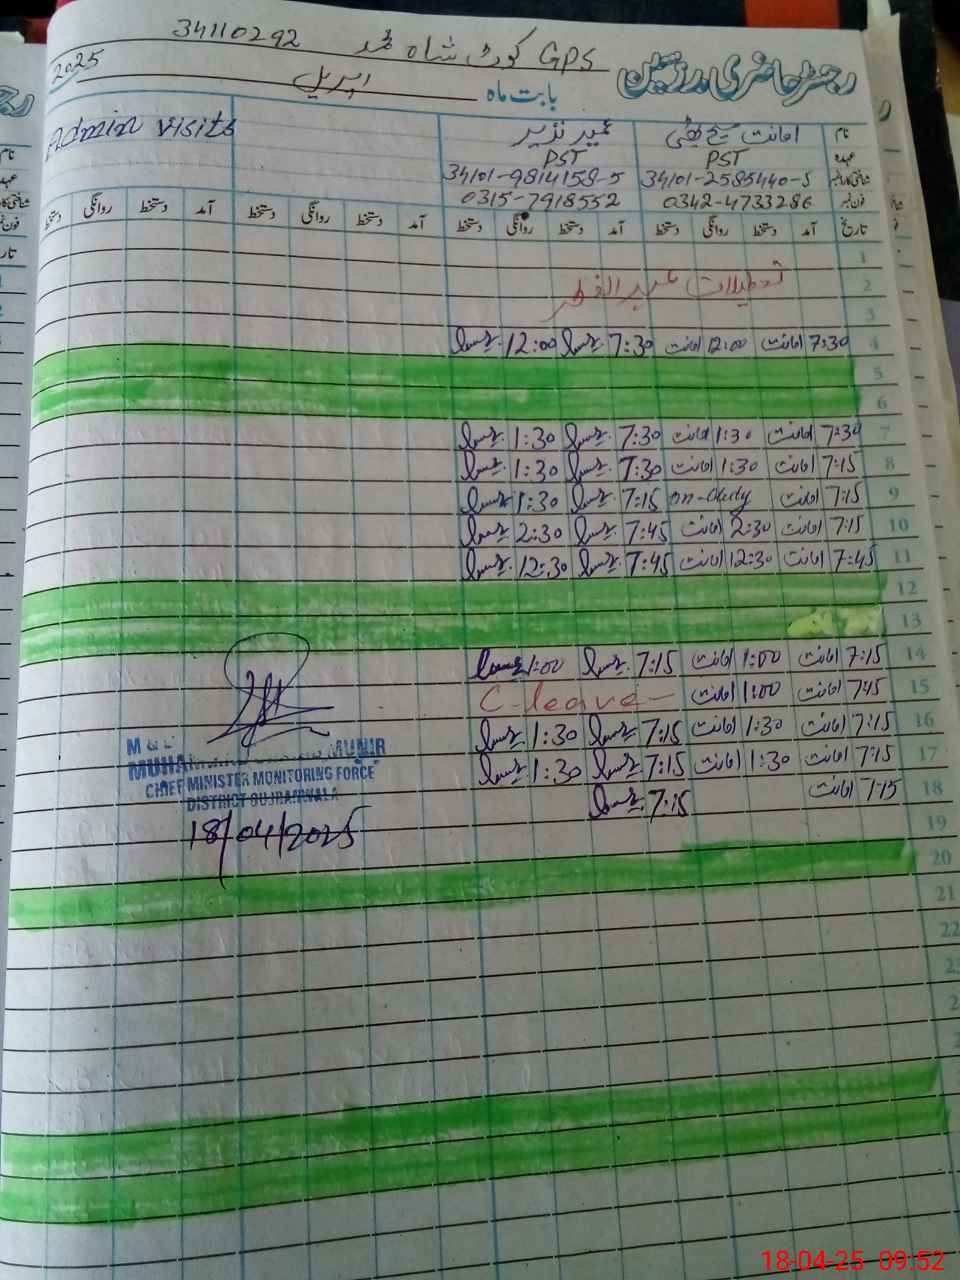 34110292 GPS کوٹ شاہ محمد
رجسٹر حاضری مدرسین
بابت ماہ اپریل 2025
نام امانت مسیح بھٹی عمیر نذیر Admin visits
عہدہ PST PST
شناختی کارڈ نمبر 34101-2585440-5 34101-9814158-5
فون نمبر 0342-4733286 0315-7918552
تاریخ آمد دستخط روانگی دستخط آمد دستخط روانگی دستخط آمد دستخط روانگی دستخط آمد دستخط روانگی دستخط
1
2 تعطیلات عید الفطر
3
4 7:30 امانت 12:00 امانت 7:30 12:00
5
6
7 7:30 امانت 1:30 امانت 7:30 1:30
8 7:15 امانت 1:30 امانت 7:30 1:30
9 7:15 امانت on-duty 7:15 1:30
10 7:15 امانت 2:30 امانت 7:45 2:30
11 7:45 امانت 12:30 امانت 7:45 12:30
12
13
14 7:15 امانت 1:00 امانت 7:15 1:00
15 7:45 امانت 1:00 امانت C-leave-
16 7:15 امانت 1:30 امانت 7:15 1:30
17 7:15 امانت 1:30 امانت 7:15 1:30
18 7:15 امانت 7:15
19
20
21
22
MUNIR
CHIEF MINISTER MONITORING FORCE
DISTRICT GUJRANWALA
18/04/2025
18-04-25 09:52